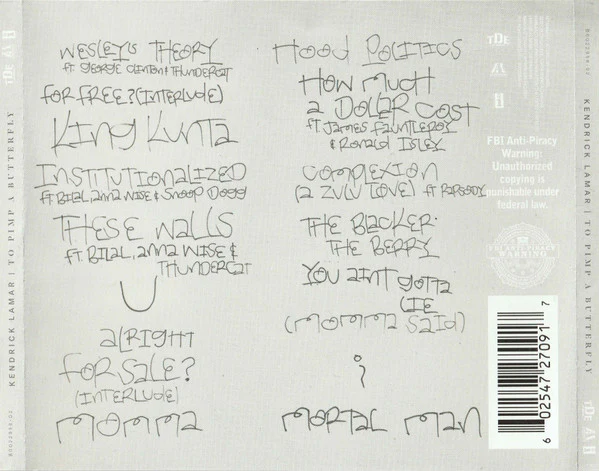 WESLEY'S THEORY
ft GEORGE CLINTON & THUNDERCAT
FOR FREE? (INTERLUDE)
KING KUNTA
INSTITUTIONALIZED
ft BILAL, ANNA WISE & SNOOP DOGG
THESE WALLS
ft. BILAL, ANNA WISE &
THUNDERCAT
U
ALRIGHT
FOR SALE?
(INTERLUDE)
MOMMA
HOOD POLITICS
HOW MUCH
A DOLLAR COST
ft JAMES FAUNTLEROY
& RONALD ISLEY
COMPLEXION
(A ZULU LOVE) ft RAPSODY
THE BLACKER
THE BERRY
YOU AINT GOTTA
LIE
(MOMMA SAID)
i
MORTAL MAN
TDE
FBI Anti-Piracy
Warning:
Unauthorized
copying is
punishable under
federal law.
FBI ANTI-PIRACY
WARNING
6 02547 27091 7
KENDRICK LAMAR | TO PIMP A BUTTERFLY
TDE
KENDRICK LAMAR | TO PIMP A BUTTERFLY
TDE